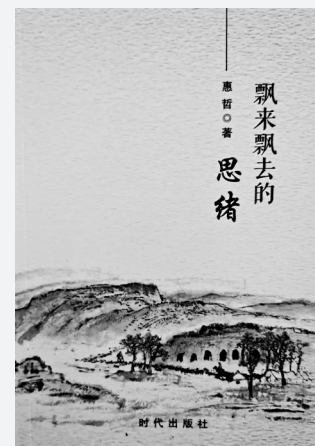 飘来飘去的
思绪
惠哲◎著
时代出版社